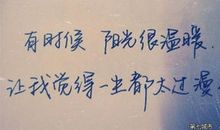 有时候 阳光很温暖
让我觉得一生都太过漫